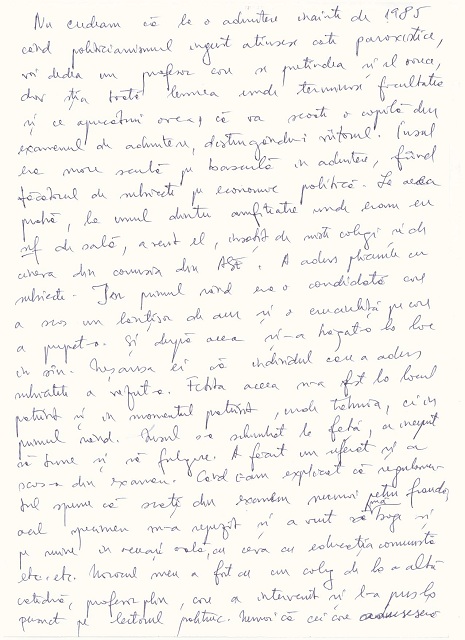 Nu credeam că la o admitere înainte de 1985
când politicianismul ingust atinsese cote paroxistice,
voi vedea un profesor care se pretindea și el ovrea,
dar știa toată lumea unde terminase facultatea
și ce apucături avea, că va scoate o copilă din
examenul de admitere, distrugându-i viitorul. Insul
era mare sculă pe basculă în admitere, fiind
făcătorul de subiecte pe economie politică. La acea
probă, la unul dintre amfiteatre unde eram eu
șef de sală, a venit el, însoțit de niște colegi și de
cineva din comisia din ASE. A adus plicurile cu
subiecte. In primul rând era o candidată care
a scos un lănțișor de aur și o cruciuliță pe care
a pupat-o. Și după aceea și-a băgat-o la loc
în sân. Neșansa ei că individul care a adus
subiectele a văzut-o. Fetița aceea n-a fost la locul
potrivit și în momentul potrivit, unde trebuia, ci în
primul rând. Insul s-a schimbat la față, a început
să tune și să fulgere. A făcut un referat și a
scos-o din examen. Când i-am explicat că regulamen-
tul spune că scoate din examen numai pentru fraudă,
acel specimen m-a repezit și a vrut să mă bage și
pe mine în aceeași oală, cu ceva cu educația comunistă
etc. etc. Norocul meu a fost cu un coleg de la o altă
catedră, profesor plin, care a intervenit și l-a pus la
punct pe lectorul politruc. Numai că cei care aduseseră